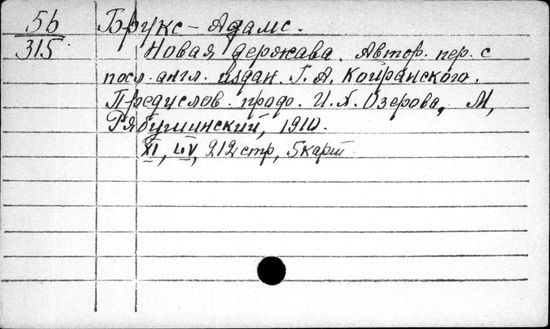 56 Брукс-Адамс.
315 Новая держава. Автор. пер. с
посл. англ. издан. Г. А. Койранского.
Предислов. проф. И. Х. Озерова, М,
Рябушинский, 1910.
XI, LIV, 212 стр, 5 карт